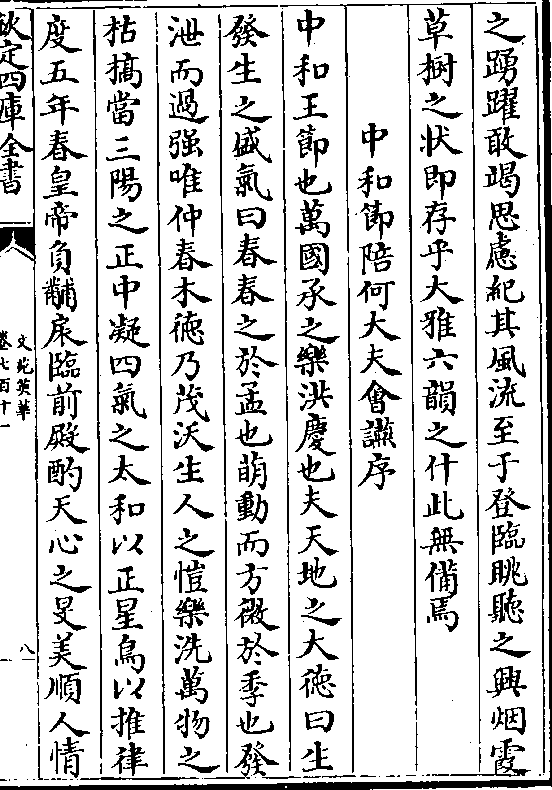 之踴躍敢竭思慮紀其風流至于登臨眺聽之興烟霞
草樹之状即存乎大雅六韻之什此無備焉
中和節陪何大夫會讌序
中和王節也萬國承之樂洪慶也夫天地之大德曰生
發生之盛氣曰春春之於孟也萌動而方微於季也發
洩而過强唯仲春木德乃茂沃生人之愷樂洗萬物之
枯槁當三陽之正中凝四氣之太和以正星鳥以推律
度五年春皇帝負黼扆臨前殿酌天心之旻美順人情
欽定四庫全書
文苑英華
卷七百十一
八